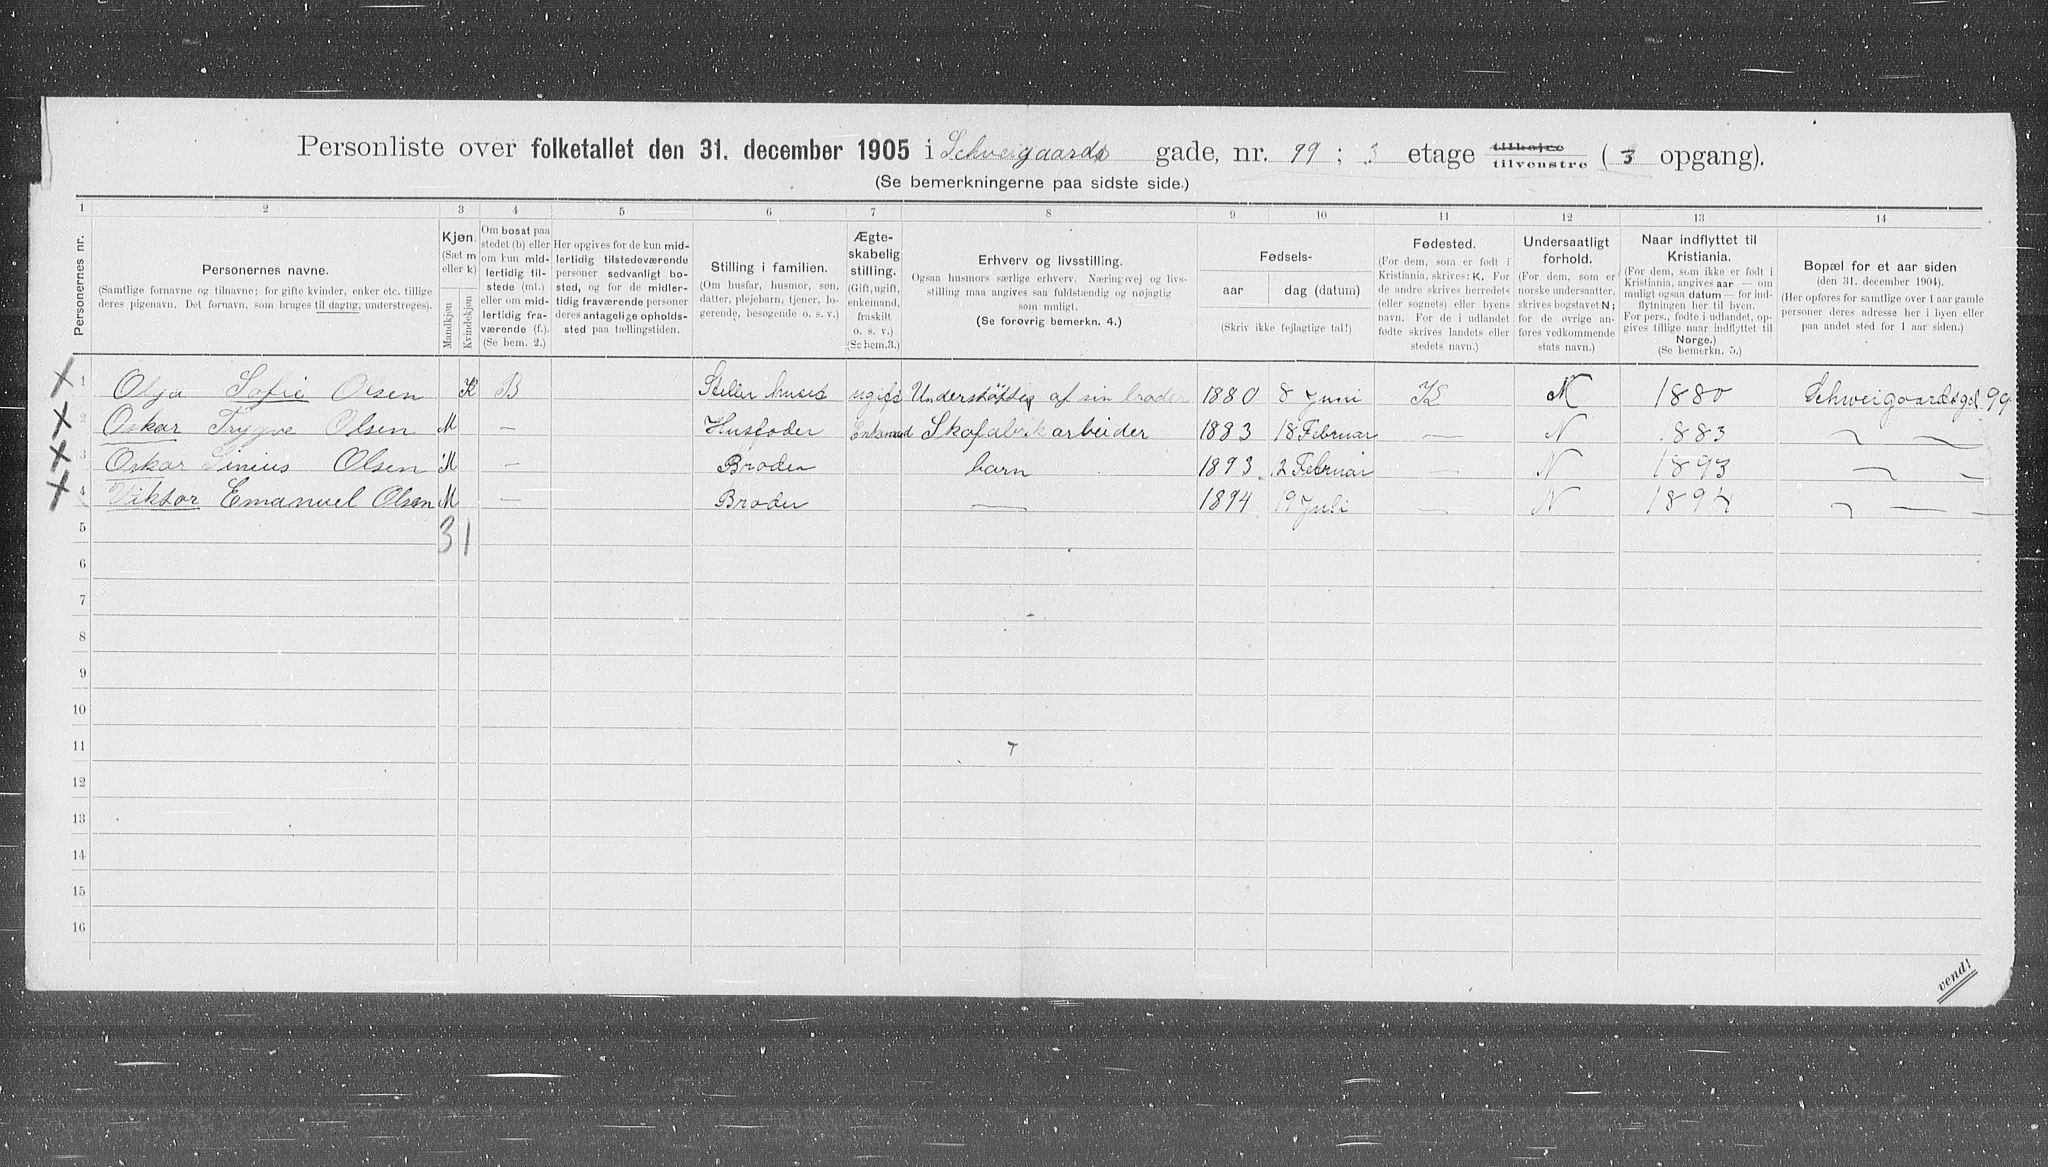 Personliste over folketallet den 31. december 1905 i Schveigaards gade, nr. 99 ; 3 etage tilhøjre tilvenstre ( 3 opgang).
(Se bemerkningerne paa sidste side.)
1 2 3 4 5 6 7 8 9 10 11 12 13 14
Personernes nr.
Personernes navne.
(Samtlige fornavne og tilnavne; for gifte kvinder, enker etc. tillige
deres pigenavn. Det fornavn, som bruges til daglig, understreges).
Kjøn.
(Sæt m
eller k)
Mandkjøn
Kvindekjøn
Om bosat paa
stedet (b) eller
om kun mid-
lertidig til-
stede (mt.)
eller om mid-
lertidig fra-
værende (f.).
(Se bem. 2.)
Her opgives for de kun mid-
lertidig tilstedeværende
personer sedvanligt bo-
sted, og for de midler-
tidig fraværende personer
deres antagelige opholds-
sted paa tællingstiden.
Stilling i familien.
(Om husfar, husmor, søn,
datter, plejebarn, tjener, lo-
gerende, besøgende o. s. v.)
Ægte-
skabelig
stilling.
(Gift, ugift,
enkemand,
fraskilt
o. s. v.)
(Se bem.3.)
Erhverv og livsstilling.
Ogsaa husmors særlige erhverv. Næringsvej og livs-
stilling maa angives saa fuldstændig og nøjagtig
som muligt.
(Se forøvrig bemerkn. 4.)
Fødsels-
aar
dag (datum)
(Skriv ikke fejlagtige tal!)
Fødested.
(For dem, som er født i
Kristiania, skrives: K. For
de andre skrives herredets
(eller sognets) eller byens
navn. For de i udlandet
fødte skrives landets eller
stedets navn.)
Undersaatligt
forhold.
(For dem, som er
norske undersaatter,
skrives bogstavet N;
for de øvrige an-
føres vedkommende
stats navn.)
Naar indflyttet til
Kristiania.
(For dem, som ikke er født i
Kristiania, angives aar — om
muligt ogsaa datum — for ind-
flytningen her til byen.
For pers., fødte i udlandet, op-
gives tillige naar indflyttet til
Norge.)
(Se bemerkn. 5.)
Bopæl for et aar siden
(den 31. december 1904).
(Her opføres for samtlige over 1 aar gamle
personer deres adresse her i byen eller
paa andet sted for 1 aar siden.)
1 Olga Sofie Olsen K B Steller huset ugift Understøttes af sin broder 1880 8 Juni K N 1880 Schweigaardsgd. 99
2 Oskar Trygve Olsen M — Husfader Enkemand Skofabrikarbeider 1883 18 Februar — N 1883 — —
3 Oskar Sinius Olsen M — Broder barn 1893 2 Februar — N 1893 — —
4 Viktor Emanuel Olsen M — Broder — 1894 19 Juli — N 1894 — — —
5 3 1
6
7
8
9
10
11
12
13
14
15
16
vend!